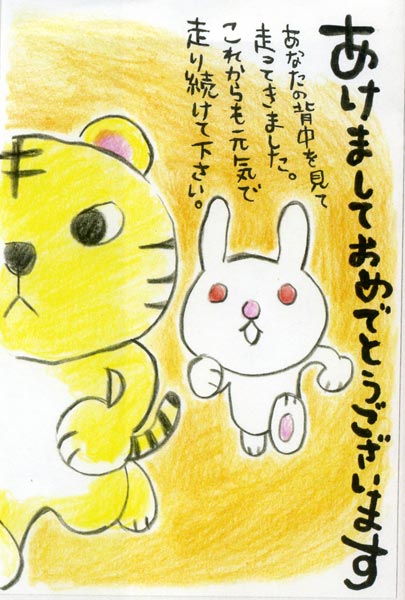 あけましておめでとうございます
あなたの背中を見て
走ってきました。
これからも元気で
走り続けて下さい。